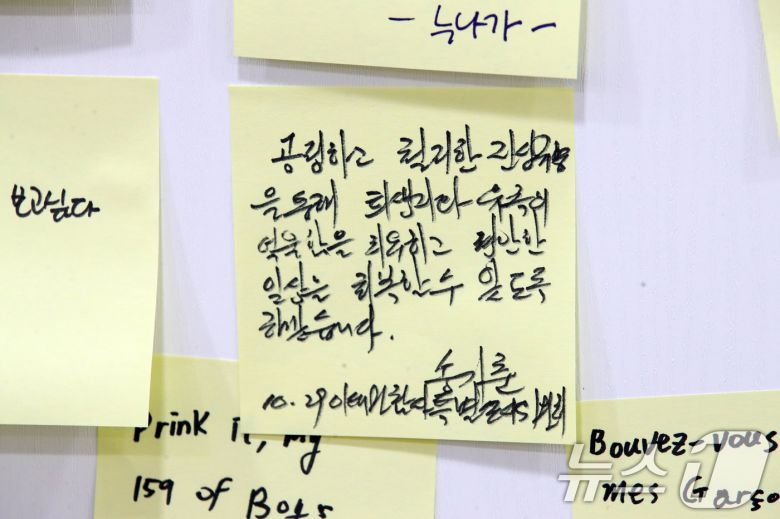 - 늑나가 -
보고싶다
공정하고 철저한 진상규명
을 통해 희생자와 유족의
억울함을 위로하고 편안한
일상을 회복할 수 있도록
하겠습니다.
송기춘
10. 29 이태원참사특별조사위원회
Drink it, my
159 of Boys
Bouvez-vous
mes Garso
뉴스1